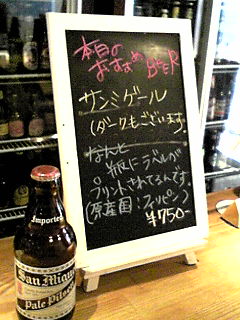 本日の
おすすめ BEER
サンミゲール
(ダークもございます)
なんと
瓶にラベルが
プリントされてるんです
(原産国:フィリピン)
¥750-
Imported
San Migu
Pale Pilsen